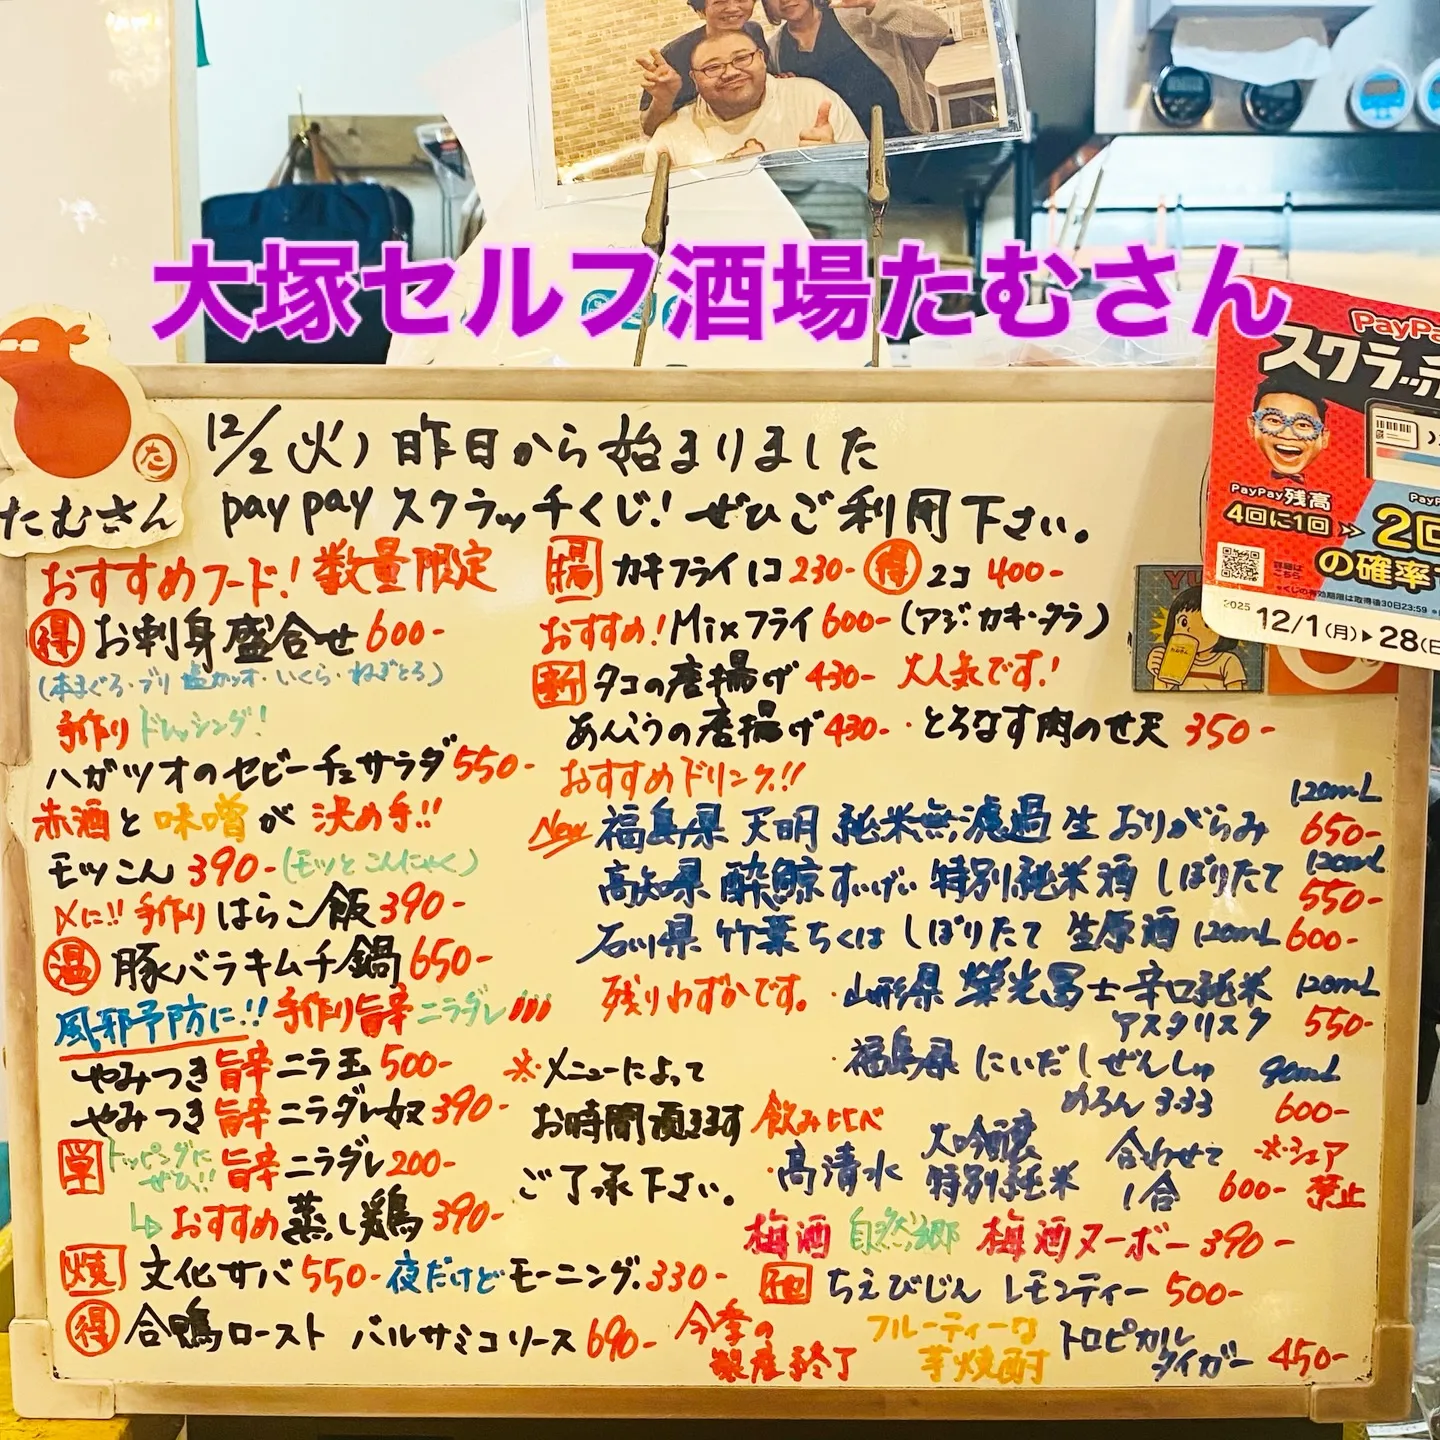 大塚セルフ酒場たむさん
たむさん
た
PayPa
スクラッチ
PayPay残高
4回に1回
2回
の確率で
2025
12/1(月)▶28(日
12/2(火)昨日から始まりました
paypayスクラッチくじ!ぜひご利用下さい。
おすすめフード!数量限定
得 お刺身盛合せ 600-
(本まぐろ・ブリ 塩カツオ・いくら・ねぎとろ)
手作りドレッシング!
ハガツオのセビーチェサラダ 550-
赤酒と味噌が決め手!!
モツこん 390-(モツとこんにゃく)
〆に!!手作りはらこ飯 390-
温 豚バラキムチ鍋 650-
風邪予防に!!手作り旨辛ニラダレ
やみつき旨辛ニラ玉 500-
やみつき旨辛ニラダレ奴 390-
単 トッピングにぜひ!!旨辛ニラダレ 200-
おすすめ蒸し鶏 390-
焼 文化サバ 550- 夜だけどモーニング 330-
得 合鴨ロースト バルサミコソース 690-
揚 カキフライ 1コ 230- 得 2コ 400-
おすすめ!Mixフライ 600-(アジ・カキ・タラ)
新 タコの唐揚げ 430- 大人気です!
あんこうの唐揚げ 430-・とろなす肉のせ天 350-
おすすめドリンク!!
New 福島県 天明 純米無濾過生 おりがらみ 120mL 650-
高知県 酔鯨 すいげい 特別純米酒 しぼりたて 120mL 550-
石川県 竹葉 ちくは しぼりたて 生原酒 120mL 600-
残りわずかです。・山形県 榮光冨士 辛口純米 アスタリスク 120mL 550-
・福島県 にいだしぜんしゅ めろん3.33 90mL 600-
※メニューによって
お時間頂きます
ご了承下さい。
飲み比べ
・高清水 大吟醸 特別純米 合わせて1合 600- ※シェア禁止
梅酒 自然郷 梅酒ヌーボー 390-
他 ちえびじん レモンティー 500-
今季の製産終了 フルーティーな芋焼酎 トロピカルタイガー 450-